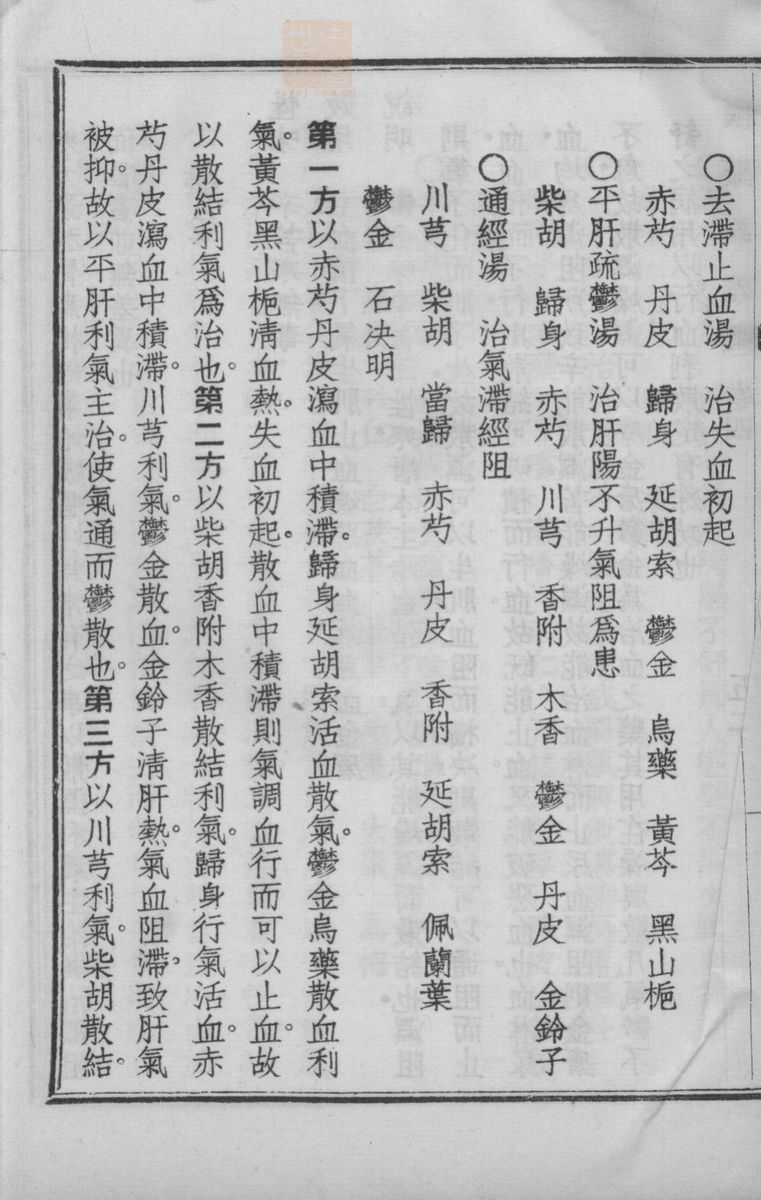 ○去滯止血湯　治失血初起
赤芍　丹皮　歸身　延胡索　鬱金　烏藥　黃芩　黑山梔
○平肝疏鬱湯　治肝陽不升氣阻爲患
柴胡　歸身　赤芍　川芎　香附　木香　鬱金　丹皮　金鈴子
○通經湯　治氣滯經阻
川芎　柴胡　當歸　赤芍　丹皮　香附　延胡索　佩蘭葉
鬱金　石决明
第一方以赤芍丹皮瀉血中積滯。歸身延胡索活血散氣。鬱金烏藥散血利
氣。黃芩黑山梔淸血熱。失血初起。散血中積滯則氣調血行而可以止血。故
以散結利氣爲治也。第二方以柴胡香附木香散結利氣。歸身行氣活血。赤
芍丹皮瀉血中積滯。川芎利氣。鬱金散血。金鈴子淸肝熱。氣血阻滯。致肝氣
被抑。故以平肝利氣主治。使氣通而鬱散也。第三方以川芎利氣。柴胡散結。